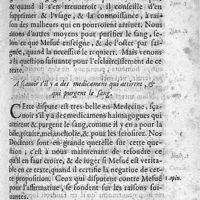 & quand il s'en trouueroit, il conseille d'en
supprimer & l'vsage, & la connoissance, à rai-
son des malheurs qui en pourroient arriuer. Nous
auons d'autres moyens pour purifier le sang, se-
lon ce que Mesué enseigne, & de l'oster par sai-
gnée, quand la necessité le requiert. Mais venons
à la question suiuante pour l'éclaircissement de
cette
A sçauoir s'il y a des medicamens qui attirent, &
qui purgent le sang.
CEtte dispute est tres-belle en Medecine, sça-
uoir s'il y a des medicamens haimagogues qui
attirent & purgent le sang, comme il y en a pour la
bile, pituite, & pour les serositez. Nos
Docteurs sont en grande querelle sur cette que-
stion; c'est à nous maintenant de resoudre ce
qu'il en faut croire, & de iuger si Mesué est verita-
ble en ce texte, quand il certifie la negatiue de cet-
te proposition. Ceux qui disputent contre Mesué
pour l'affirmatiue, se fondent sur les raisons sui-
uantes.